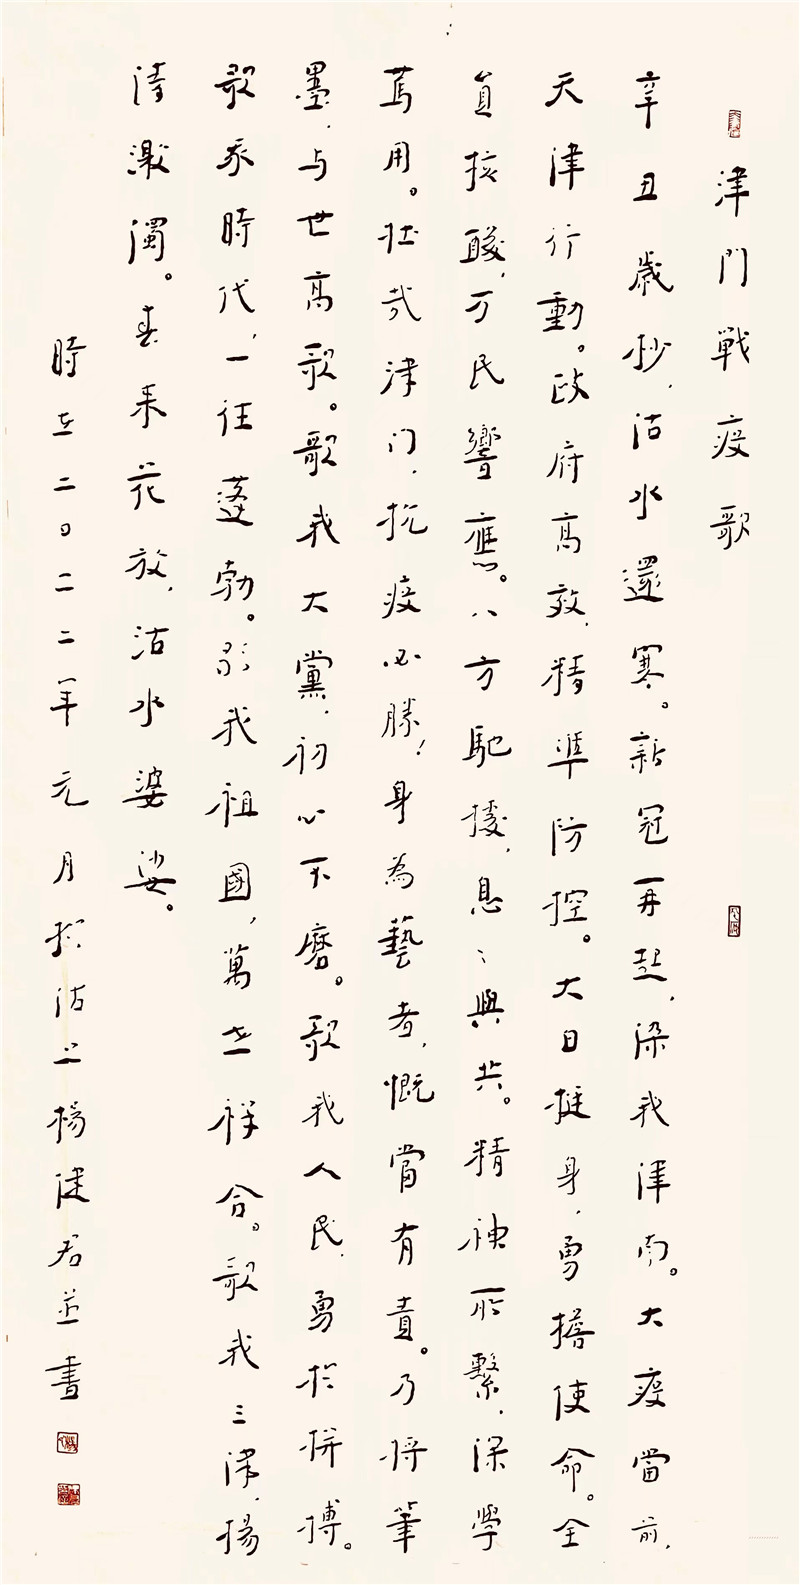 津門戦疫歌
辛丑歲杪，沽水還寒。新冠再起，染我津南。大疫當前，
天津行動。政府高效，精準防控。大白挺身，勇擔使命。全
員核酸，万民響應。八方馳援，息〻與共。精神所繫，深學
篤用。壯哉津门，抗疫必勝！身為藝者，慨當有責。乃將筆
墨，与世高歌。歌我大黨，初心不磨。歌我人民，勇於拼搏。
歌我時代，一往蓬勃。歌我祖國，萬世祥合。歌我三津，揚
清激濁。春来花放，沽水婆娑。
時在二〇二二年元月於沽上楊建君並書